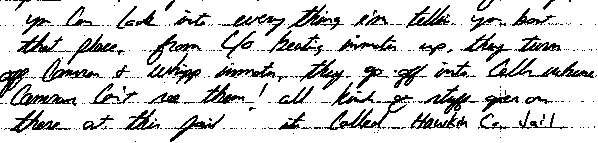 you can look into every thing i'm tellin you bout
that place. from C/O beating inmates up, they turn
off Cameras & whipp inmates, they go off into Cells where
Cameras Can't see them! all kind of stuff goes on
there at this jail it Called Hawkin Co. Jail